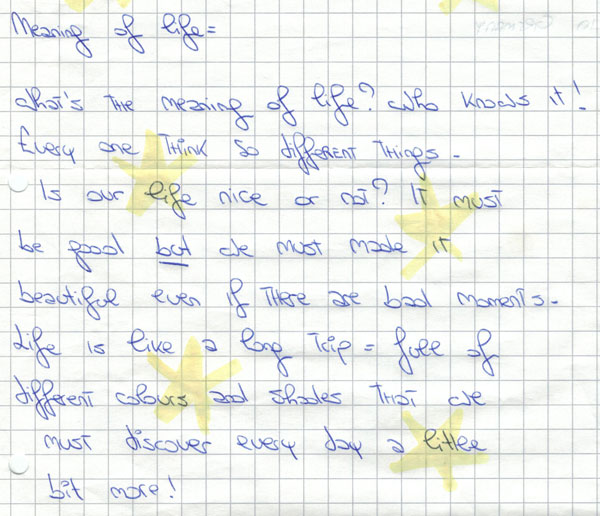 Meaning of life=
What's the meaning of life? Who knows it!
Every one think so different things.
Is our life nice or not? It must
be good but we must made it
beautiful even if there are bad moments.
Life is like a long trip = full of
different colours and shades that we
must discover every day a little
bit more!